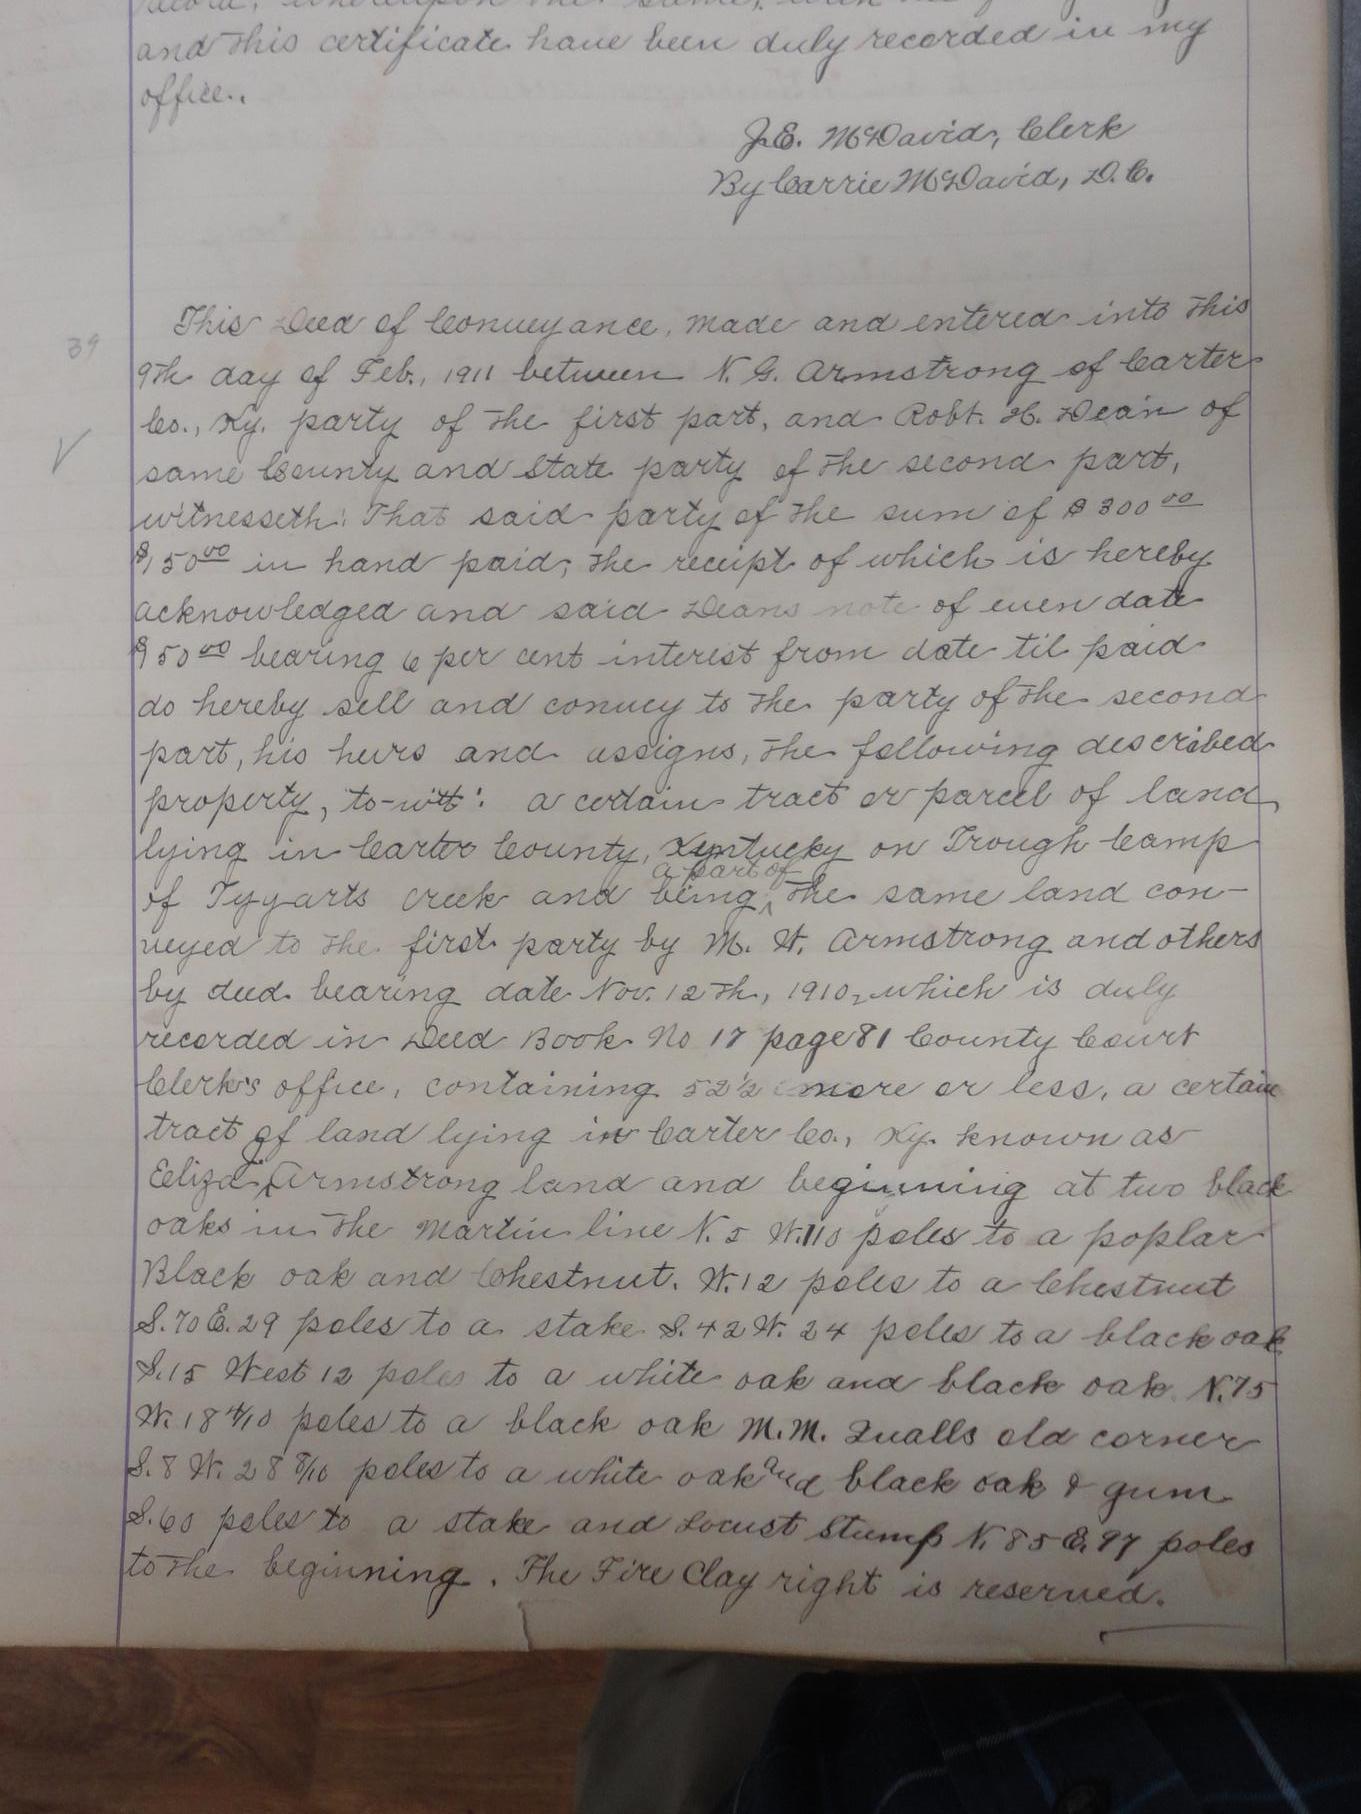 and this certificate have been duly recorded in my
office.
J.E. McDavid, Clerk
By Carrie McDavid, D.C.
This Deed of Conveyance, made and entered into this
39
9th day of Feb., 1911 between N. G. Armstrong of Carter
Co., Ky. party of the first part, and Robt. H. Dean of
same County and State party of the second part,
witnesseth: That said party of the sum of $300.00
$150.00 in hand paid, the receipt of which is hereby
acknowledged and said Deans note of even date
$50.00 bearing 6 per cent interest from date til paid
do hereby sell and convey to the party of the second
part, his heirs and assigns, the following described
property, to-wit: a certain tract or parcel of land
lying in Carter County, Kentucky on Trough Camp
a part of
of Tygarts creek and being ^ the same land con-
veyed to the first party by M. W. Armstrong and others
by deed bearing date Nov. 12th, 1910, which is duly
recorded in Deed Book No 17 page 81 County Court
Clerk's office, containing 52 1/2 more or less, a certain
tract of land lying in Carter Co., Ky. known as
Eliza J. Armstrong land and beginning at two black
oaks in the Martin line N. 5 W. 110 poles to a poplar
Black oak and Chestnut. W. 12 poles to a Chestnut
S. 70 E. 29 poles to a stake S. 42 W. 24 poles to a black oak
S. 15 West 12 poles to a white oak and black oak N. 75
W. 18 4/10 poles to a black oak M. M. Qualls old corner
S. 8 W. 28 8/10 poles to a white oak and black oak & gum
S. 60 poles to a stake and Locust Stump N. 85 E. 97 poles
to the beginning. The Fire Clay right is reserved.